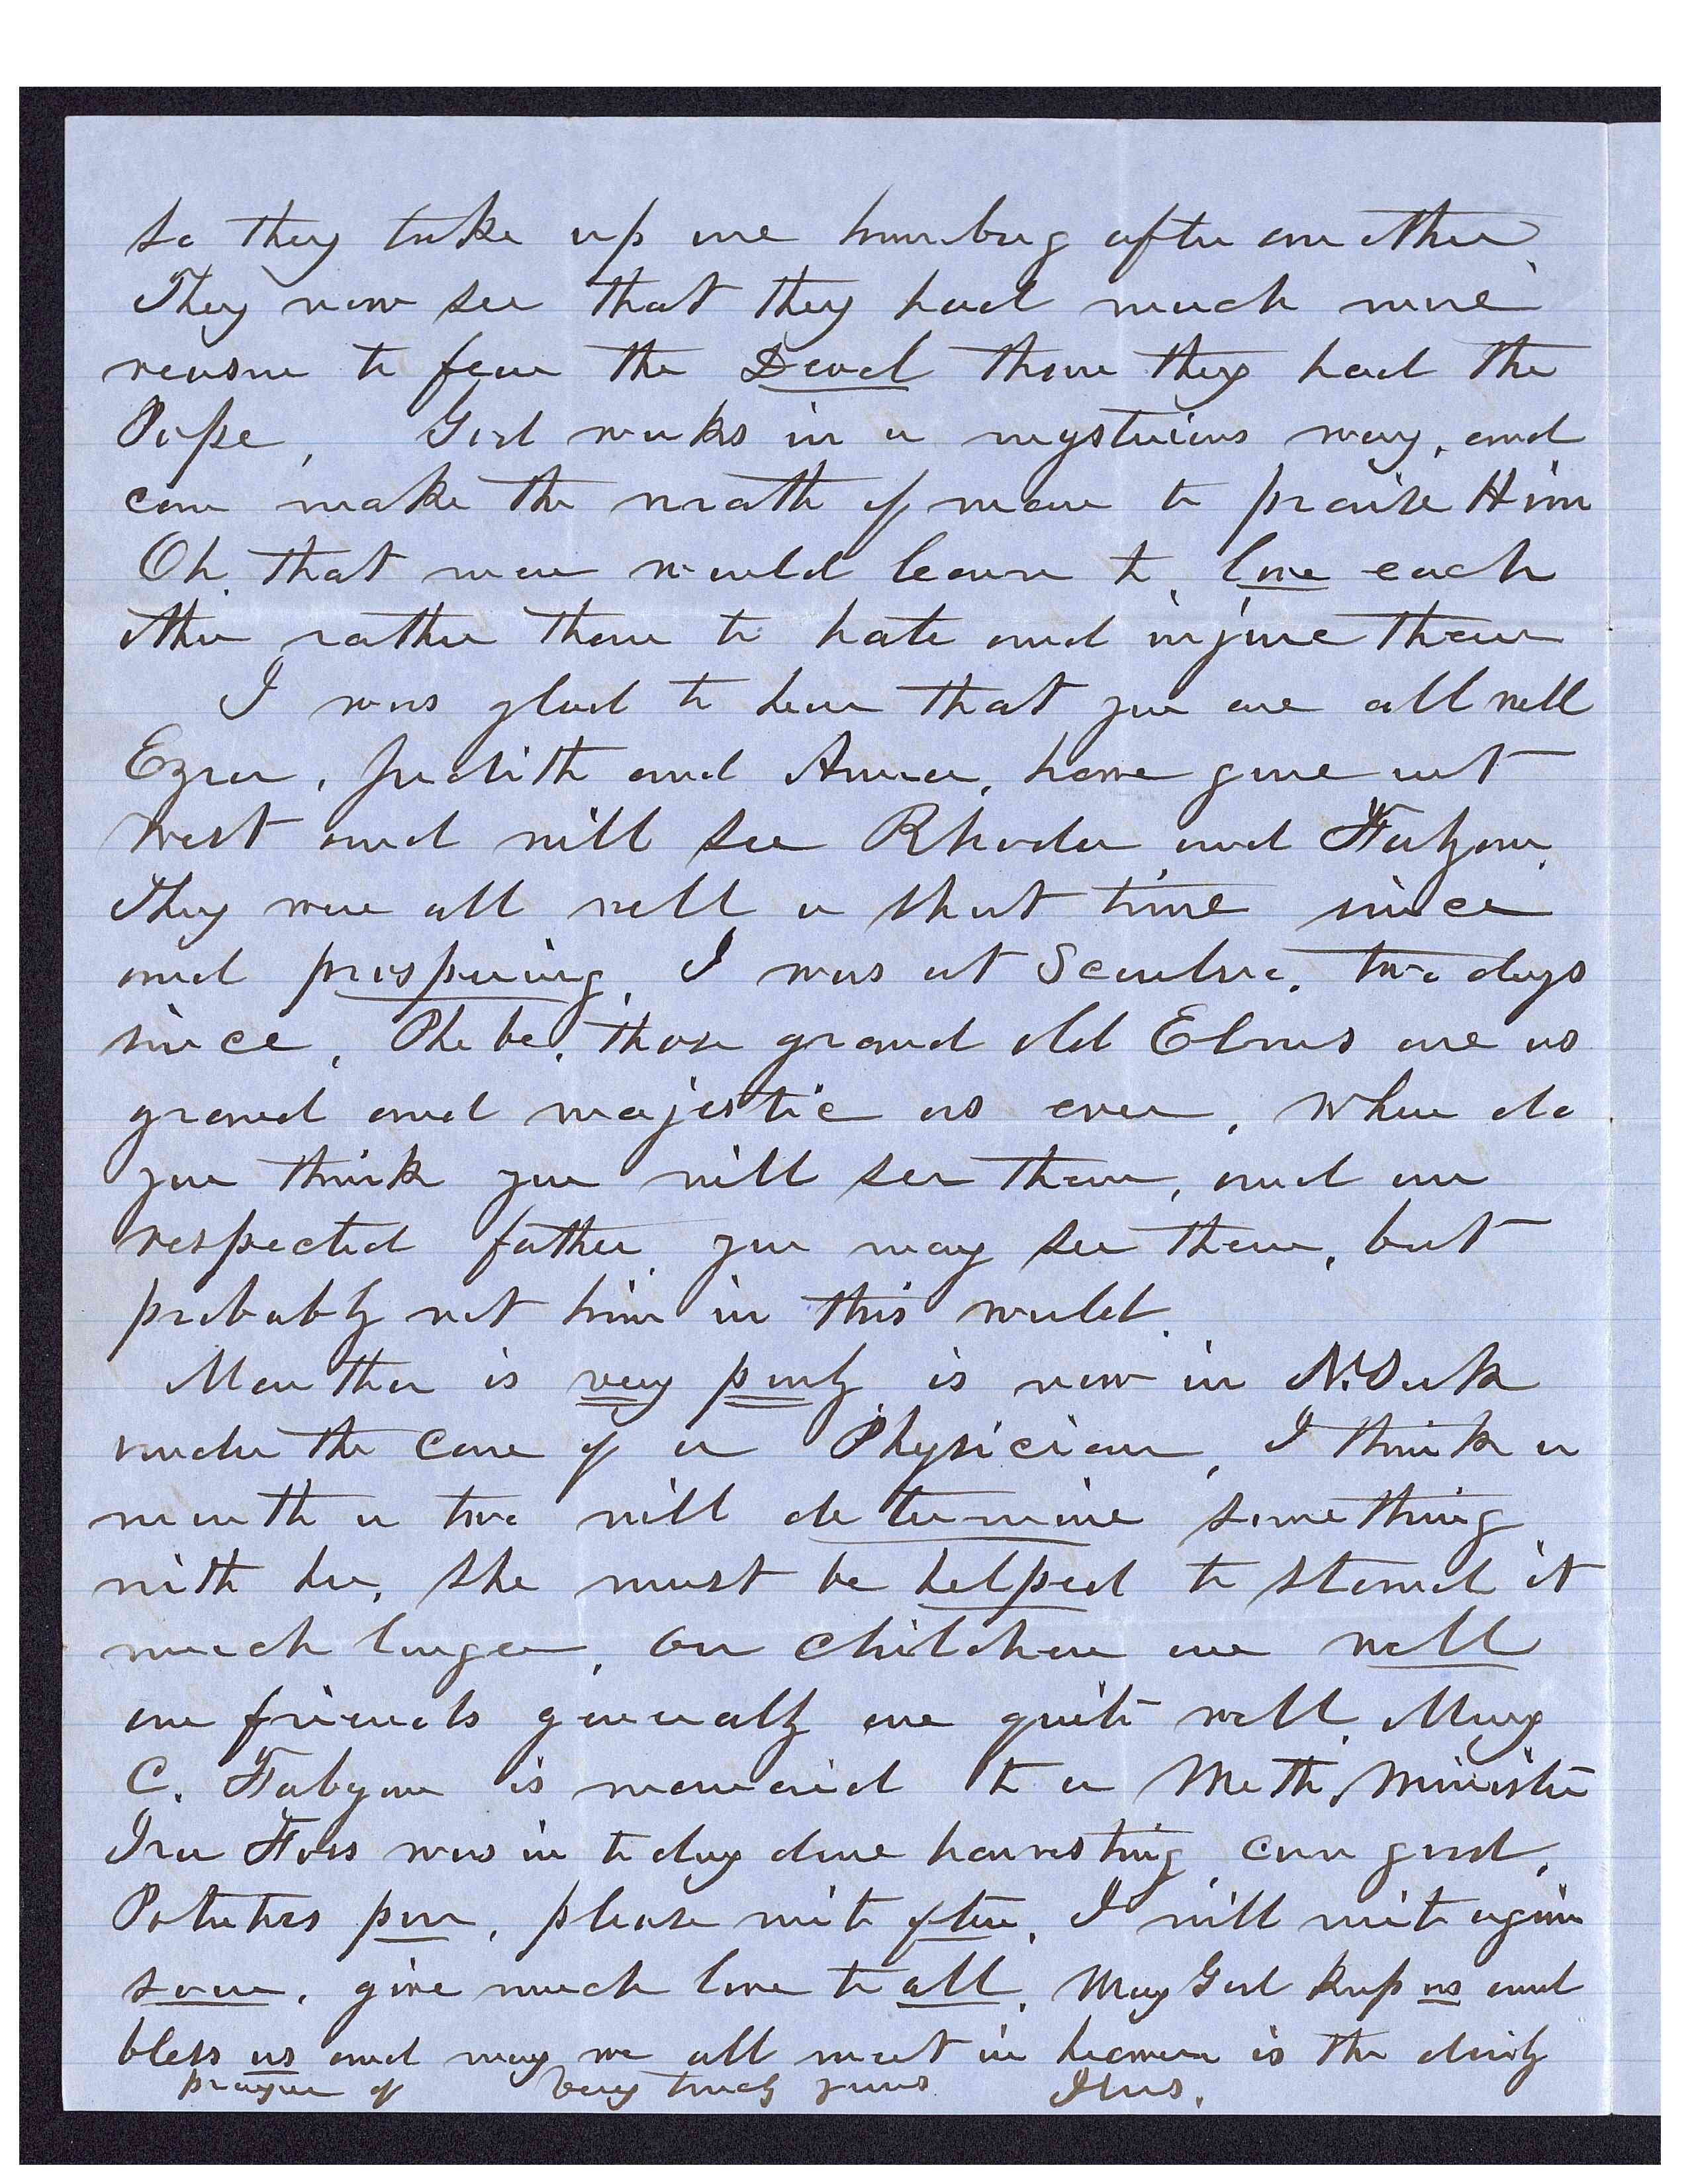 so they take up one humbug after another.
They now see that they had much more
reason to fear the Devel than they had the
Pope, God works in a mysterious way, and
can make the wrath of man to praise Him
Oh, that men would learn to, love each
other rather than to hate and injure them
I was glad to hear that you are all well
Ezra, Judith and Anna, have gone out
West and will see Rhoda and Fabyan.
They were all well a short time since
and prospering, I was at Scarboro, two days
since, Phebe, those grand old Elms are as
grand and majestic as ever, when do
you think you will see them, and our
respected father, you may see them, but
probably not him in this world.
Martha is very poorly is now in N. York
under the care of a Physician, I think a
month or two will determine something
with her, she must be helped to stand it
much longer, our children are well
our friends generally are quite well, Mary
C. Fabyan is married to a Meth, Minister
Ira Foss was in to day done harvesting, corn good,
Potatoes poor, please write often, I will write again
soon, give much love to all, May God keep us and
bless us and may we all meet in heaven is the daily
prayer of Very truly yours